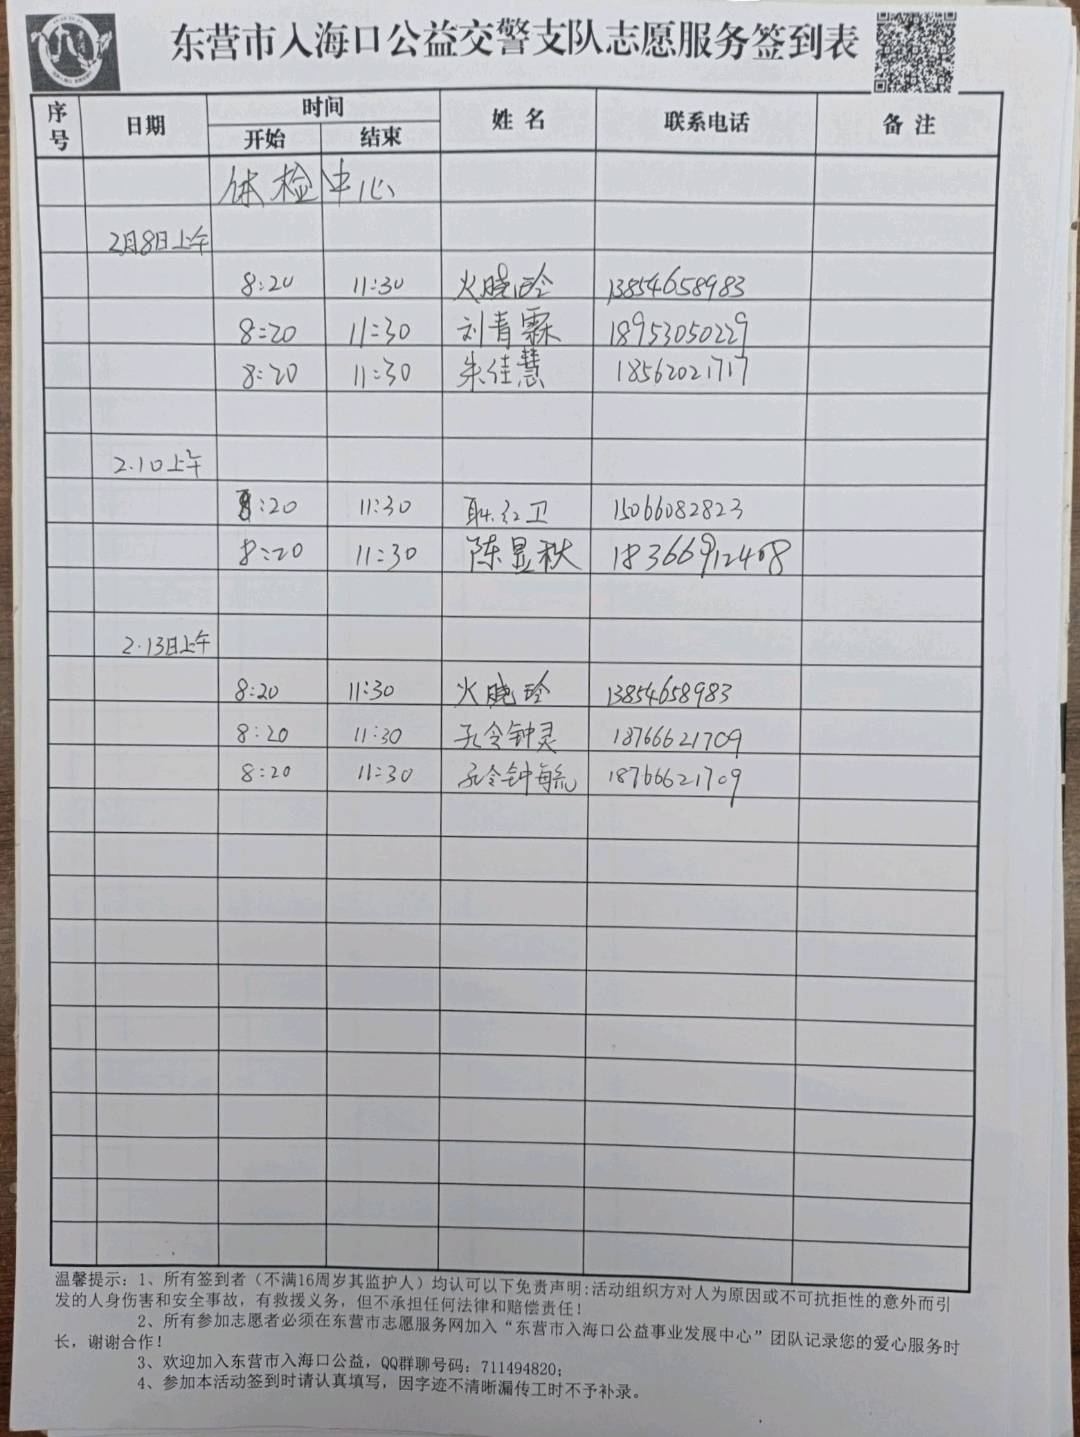 东营市入海口公益交警支队志愿服务签到表
序号 日期 时间 姓名 联系电话 备注
开始 结束
体检中心
2月8日上午
8:20 11:30 火晓玲 13854658983
8:20 11:30 刘青霖 18953050229
8:20 11:30 朱佳慧 18562021717
2.10上午
8:20 11:30 耿红卫 15066082823
8:20 11:30 陈显秋 18366912408
2.13日上午
8:20 11:30 火晓玲 13854658983
8:20 11:30 孔令钟灵 18766621709
8:20 11:30 孔令钟毓 18766621709
温馨提示:1、所有签到者(不满16周岁其监护人)均认可以下免责声明:活动组织方对人为原因或不可抗拒性的意外而引
发的人身伤害和安全事故,有救援义务,但不承担任何法律和赔偿责任!
2、所有参加志愿者必须在东营市志愿服务网加入“东营市入海口公益事业发展中心”团队记录您的爱心服务时
长,谢谢合作!
3、欢迎加入东营市入海口公益,QQ群聊号码:711494820;
4、参加本活动签到时请认真填写,因字迹不清晰漏传工时不予补录。